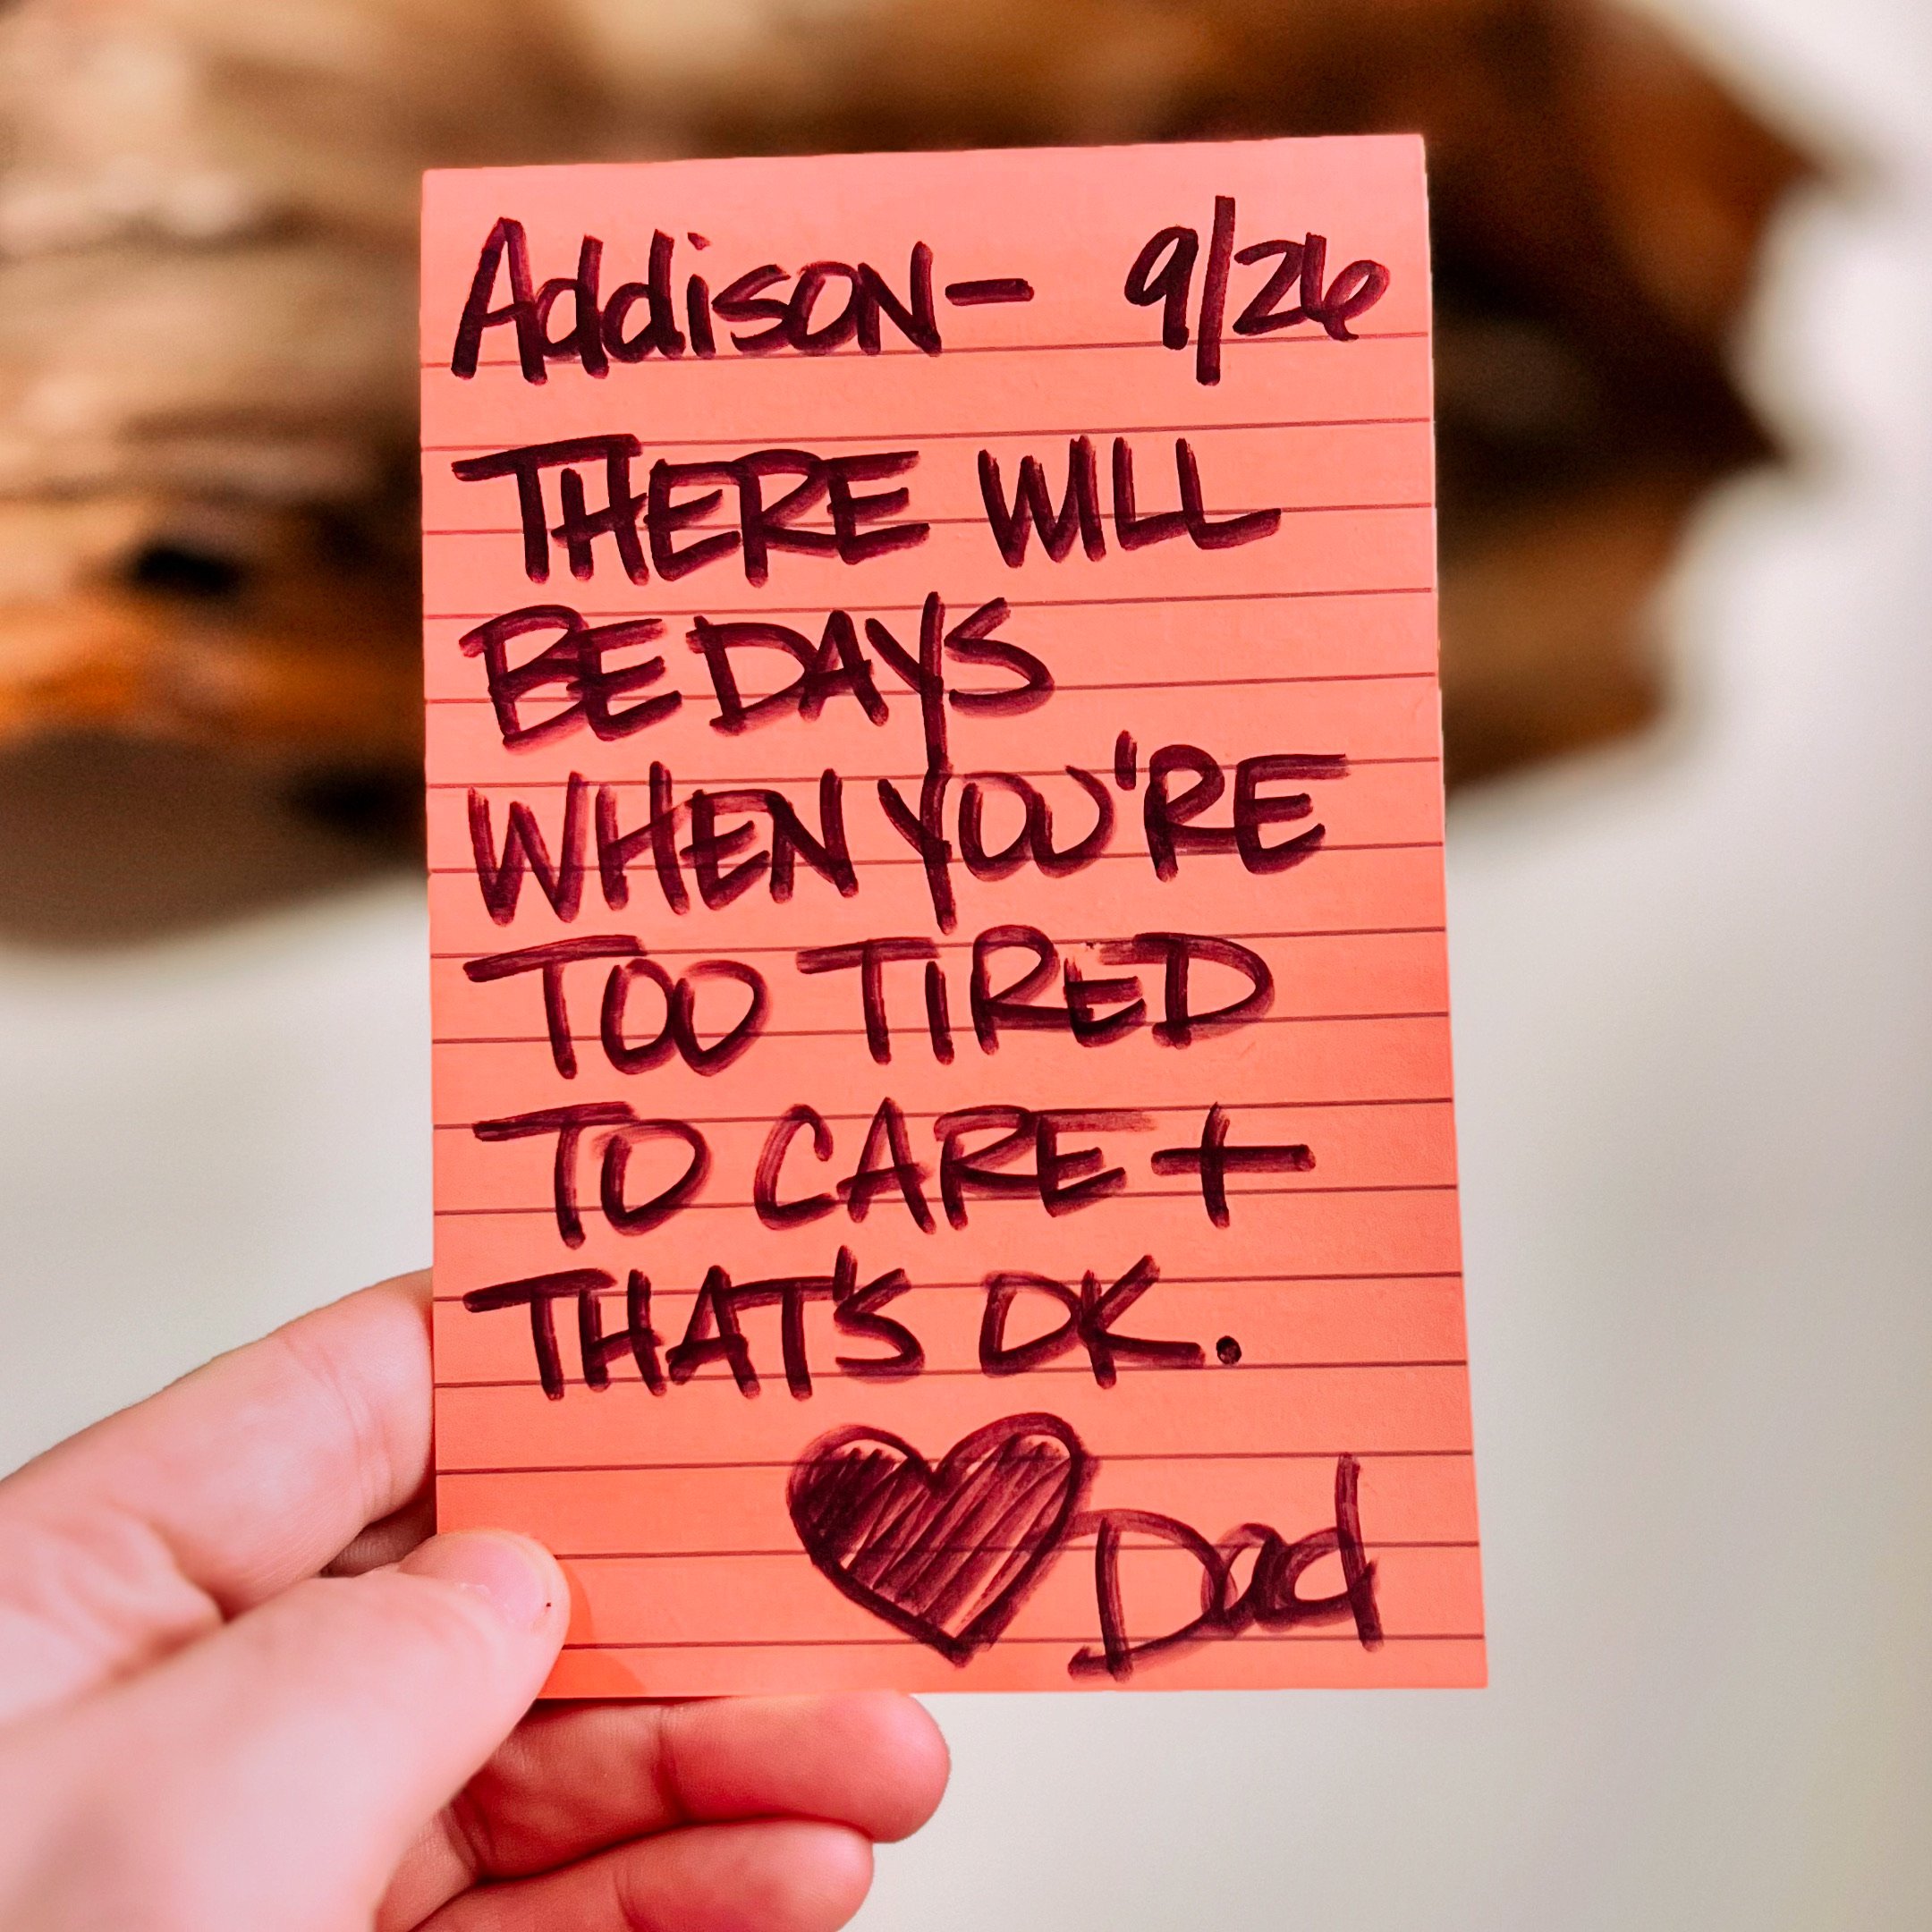 Addison- 9/26
THERE WILL
BE DAYS
WHEN YOU'RE
TOO TIRED
TO CARE +
THAT'S OK.
Dad